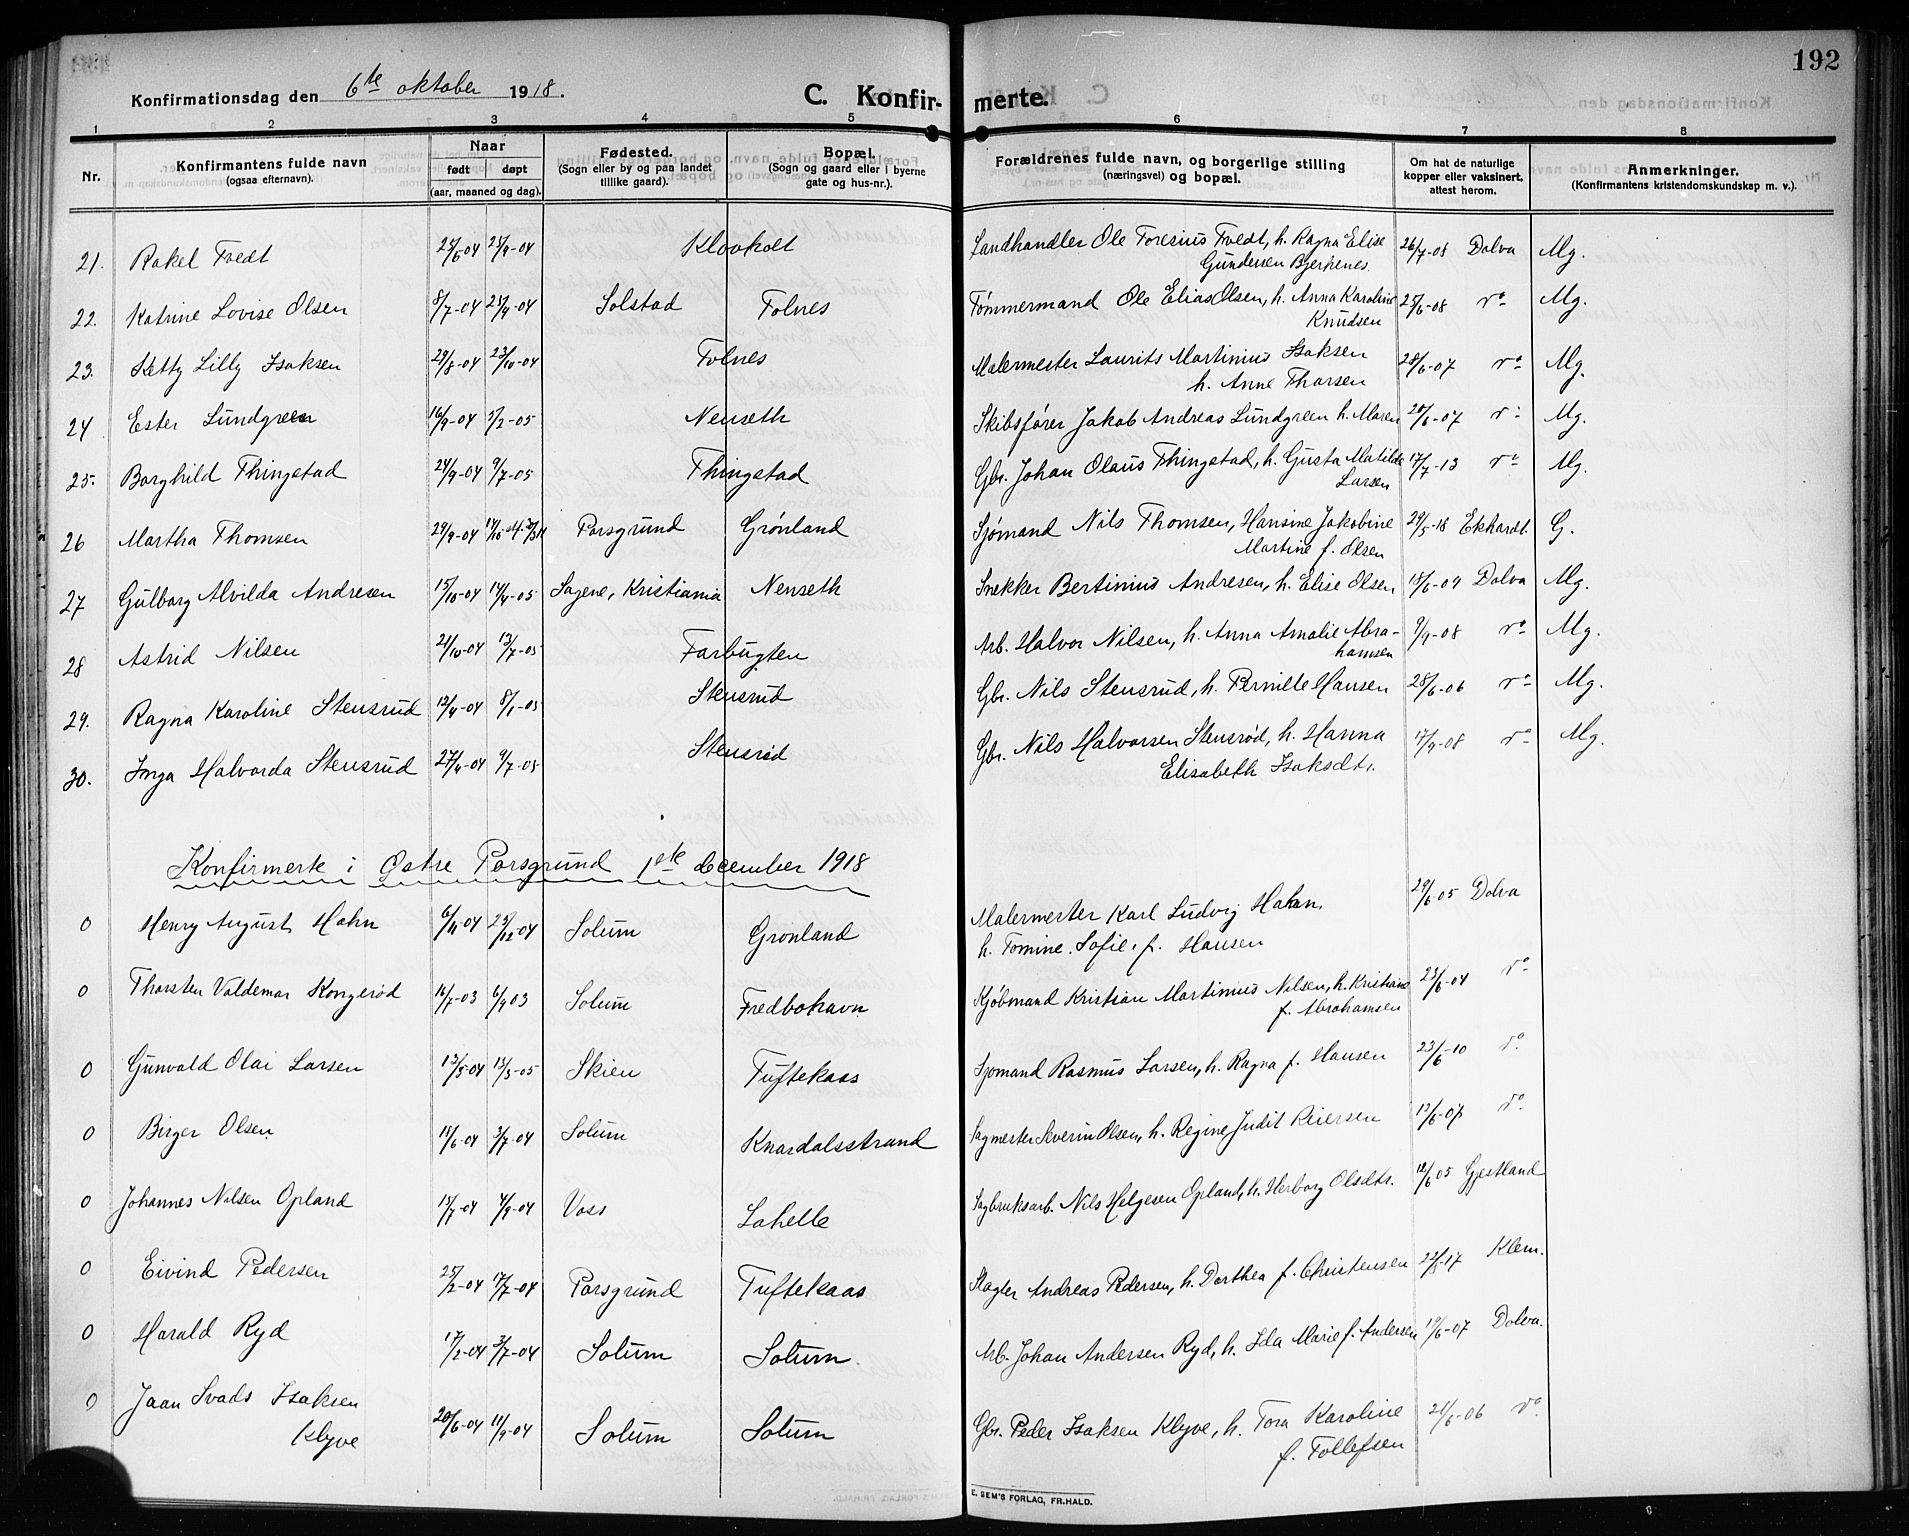 192
Konfirmationsdag den 6te oktober 1918.
C. Konfirmerte.
1 2 3 4 5 6 7 8
Nr.
Konfirmantens fulde navn (ogsaa efternavn).
Naar født døpt (aar, maaned og dag).
Fødested. (Sogn eller by og paa landet tillike gaard).
Bopæl. (Sogn og gaard eller i byerne gate og hus-nr.).
Forældrenes fulde navn, og borgerlige stilling (næringsvei) og bopæl.
Om hat de naturlige kopper eller vaksinert, attest herom.
Anmerkninger. (Konfirmantens kristendomskundskap m. v.).
21. Rakel Tvedt 25/9-04 Klovholt Landhandler Ole Toresius Tvedt, h. Ragna Elise 26/7-08 Dolva Mg.
Gundersen Bjerkenes.
22. Katrine Lovise Olsen 8/7-04 25/9-04 Solstad Folnes Tømmermand Ole Elias Olsen, h. Anna Karoline 25/6-08 do Mg.
Knudsen
23. Ketty Lilly Isaksen 29/8-04 23/10-04 Folnes Malermester Laurits Martinius Isaksen 28/6-07 do Mg.
h. Anne Thorsen
24 Ester Lundgreen 16/9-04 5/2-05 Nenseth Skibsfører Jakob Andreas Lundgreen h. Maren 28/6-07 do Mg.
25. Borghild Thingstad 24/9-04 9/7-05 Thingstad Gbr. Johan Olaus Thingstad, h. Gusta Matilde 17/7-13 do Mg.
Larsen
26 Martha Thomsen 29/9-04 Porsgrund Grønland Sjømand Nils Thomsen, Hansine Jakobine 29/5-18 Ekhardt. G.
Martine f. Olsen
27 Gulborg Alvilda Andresen 15/10-04 14/4-05 Sagene, Kristiania Nenseth Snekker Bertinius Andresen, h. Elise Olsen 18/6-09 Dolva Mg.
28 Astrid Nilsen 21/10-04 13/7-05 Farbugten Arb. Halvor Nilsen, h. Anna Amalie Abra- 9/9-08 do Mg.
hamsen
29. Ragna Karoline Stensrud 12/4-04 8/1-05 Stensrud Gbr. Nils Stensrud, h. Pernille Hansen 28/6-06 do Mg.
30. Inga Halvorda Stensrud 27/4-04 9/7-05 Stensrød Gbr. Nils Halvorsen Stensrød, h. Hanna 17/9-08 do Mg.
Elisabeth Isaksdtr.
Konfirmerte i Østre Porsgrund 1ste december 1918
0 Henry August Hahn 6/11-04 23/12-04 Solum Grønland Malermester Karl Ludvig Hahn, 29/6-05 Dolva
h. Tomine Sofie, f. Hansen
0 Thorsten Valdemar Kongerød 16/7-03 6/9 03 Solum Fredbohavn Kjøbmand Kristian Martinius Nilsen, h. Kristiane 23/6-04 do
f. Abrahamsen
0 Gunvald Olai Larsen 13/5-04 13/3-05 Skien Tuftekaas Sjømand Rasmus Larsen, h. Ragna f. Hansen 23/6-10 do
0 Birger Olsen 3/7-04 Solum Knardalsstrand Sagmester Severin Olsen, h. Regine Judit Reiersen do
0 Johannes Nilsen Opland 4/9-04 Voss Lahelle Sagbruksarb. Nils Helgesen Opland, h. Herborg Olsdtr. 12/6 05 Gjestland
0 Eivind Pedersen 25/2-04 17/7-04 Porsgrund Tuftekaas Andreas Pedersen, h. Dorthea f. Christensen Klem.
0 Harald Ryd 17/2-04 3/7-04 Solum Solum Arb. Johan Andersen Ryd, h. Ida Marie f. Andersen 19/6-07 Dolva.
0 Jaan Svads Isaksen 20/6-04 11/9-04 Solum Solum Gbr. Peder Isaksen Klyve, h. Tora Karoline 21/6-06 do
Klyve f. Tollefsen
E. SEM'S FORLAG, FR.HALD.